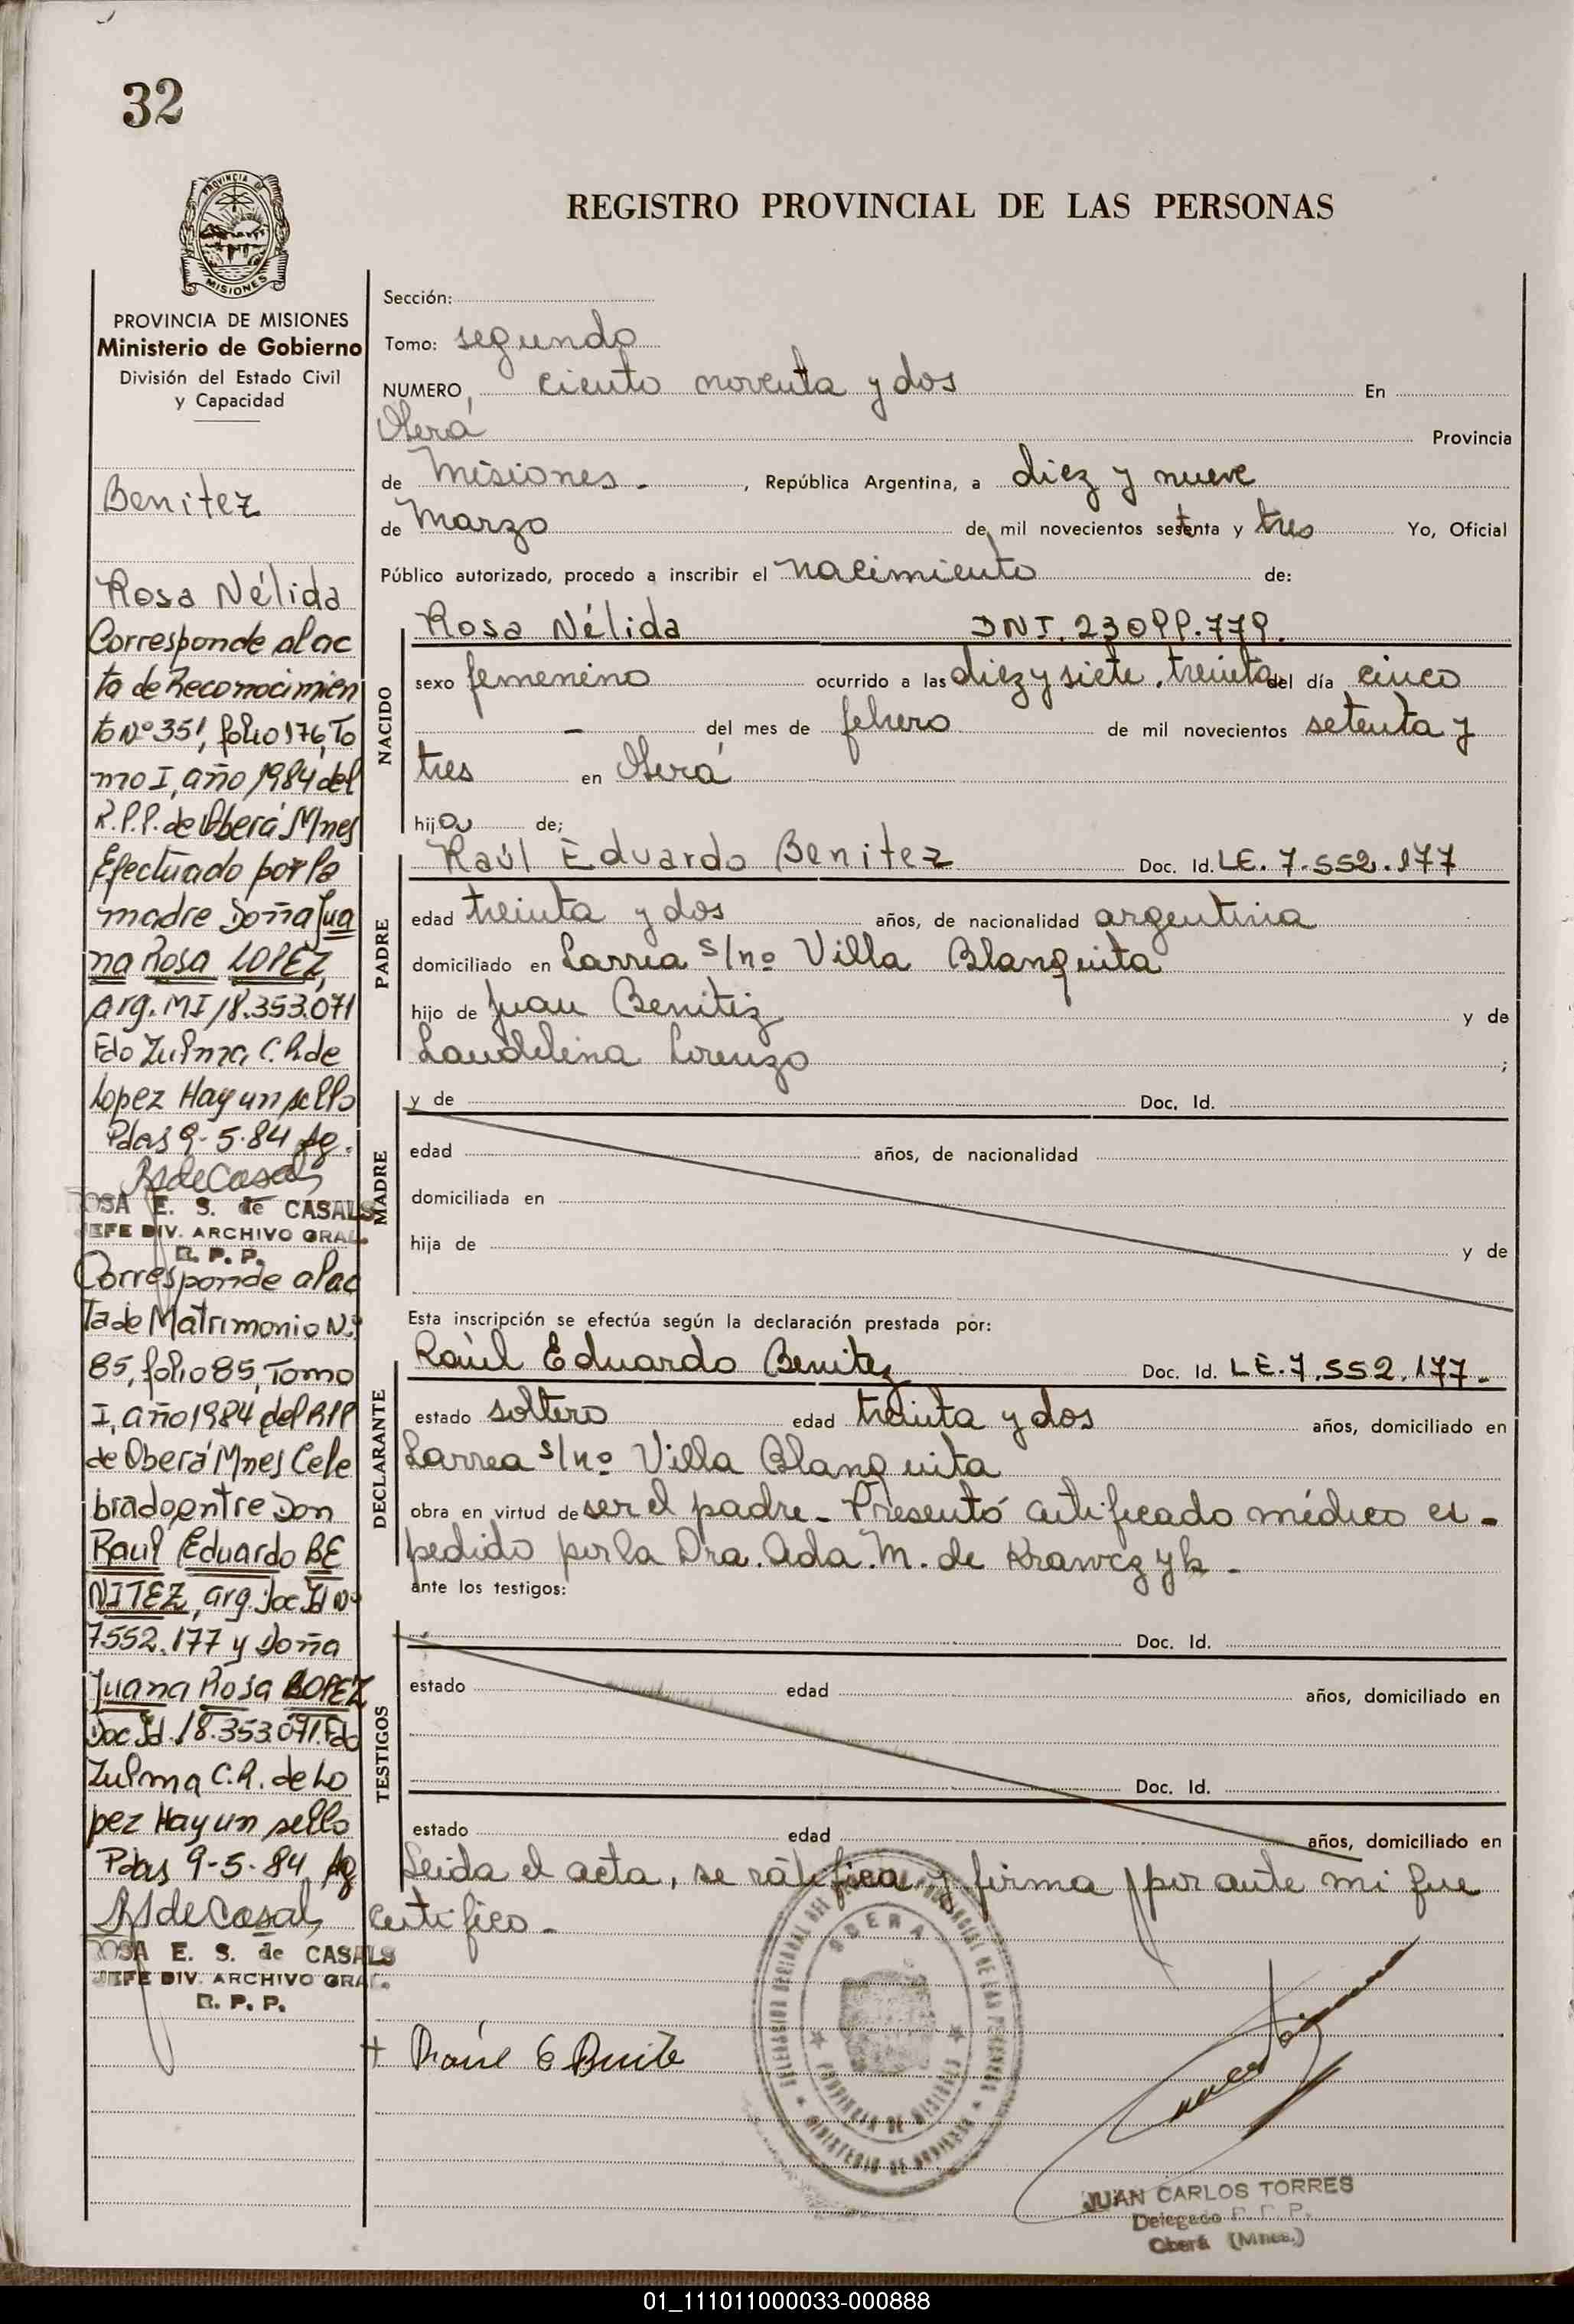 32
PROVINCIA DE MISIONES
Ministerio de Gobierno
División del Estado Civil
y Capacidad
Benitez
Rosa Nélida
Corresponde al ac
ta de Reconocimien
to Nº 351, folio 176, To
mo I, año 1984 del
R.P.P. de Oberá Mnes
Efectuado por la
madre Doña Jua
na Rosa LOPEZ,
arg. MI 18.353.071
Fdo Zulma C. R. de
Lopez Hay un sello
Pdas 9-5-84
RSdeCasals
ROSA E. S. de CASALS
JEFE DIV. ARCHIVO GRAL.
R. P. P.
Corresponde al ac
ta de Matrimonio Nº
85, folio 85, Tomo
I, año 1984 del RPP
de Oberá Mnes Cele
brado entre Don
Raul Eduardo BE
NITEZ, arg. Doc Id Nº
7552.177 y Doña
Juana Rosa LOPEZ
Doc Id. 18.353.071. Fdo
Zulma C.R. de Lo
pez Hay un sello
Pdas 9-5-84
RSdeCasals
ROSA E. S. de CASALS
JEFE DIV. ARCHIVO GRAL.
R. P. P.
REGISTRO PROVINCIAL DE LAS PERSONAS
Sección:
Tomo: segundo
NUMERO, ciento noventa y dos En
Oberá Provincia
de Misiones - , República Argentina, a diez y nueve
de Marzo de mil novecientos setenta y tres Yo, Oficial
Público autorizado, procedo a inscribir el nacimiento de:
NACIDO
Rosa Nélida DNI. 23099.779.
sexo femenino ocurrido a las diez y siete, treinta del día cinco
- del mes de febrero de mil novecientos setenta y
tres en Oberá
hija de;
PADRE
Raúl Eduardo Benitez Doc. Id. LE. 7.552.177
edad treinta y dos años, de nacionalidad argentina
domiciliado en Larrea s/nº Villa Blanquita
hijo de Juan Benitez y de
Laudelina Lorenzo ;
MADRE
y de Doc. Id.
edad años, de nacionalidad
domiciliada en
hija de y de
Esta inscripción se efectúa según la declaración prestada por:
DECLARANTE
Raúl Eduardo Benitez Doc. Id. LE. 7.552.177-
estado soltero edad treinta y dos años, domiciliado en
Larrea s/nº Villa Blanquita
obra en virtud de ser el padre - Presentó certificado médico ex-
pedido por la Dra. Ada. M. de Krawczyk -
ante los testigos:
TESTIGOS
Doc. Id.
estado edad años, domiciliado en
Doc. Id.
estado edad años, domiciliado en
Leida el acta, se ratifica y firma por ante mi que
certifico -
+ Raúl E Benite
OBERA
PROVINCIA DE MISIONES
MINISTERIO DE GOBIERNO
JUAN CARLOS TORRES
Delegado R. P. P.
Oberá (Mnes.)
01_111011000033-000888